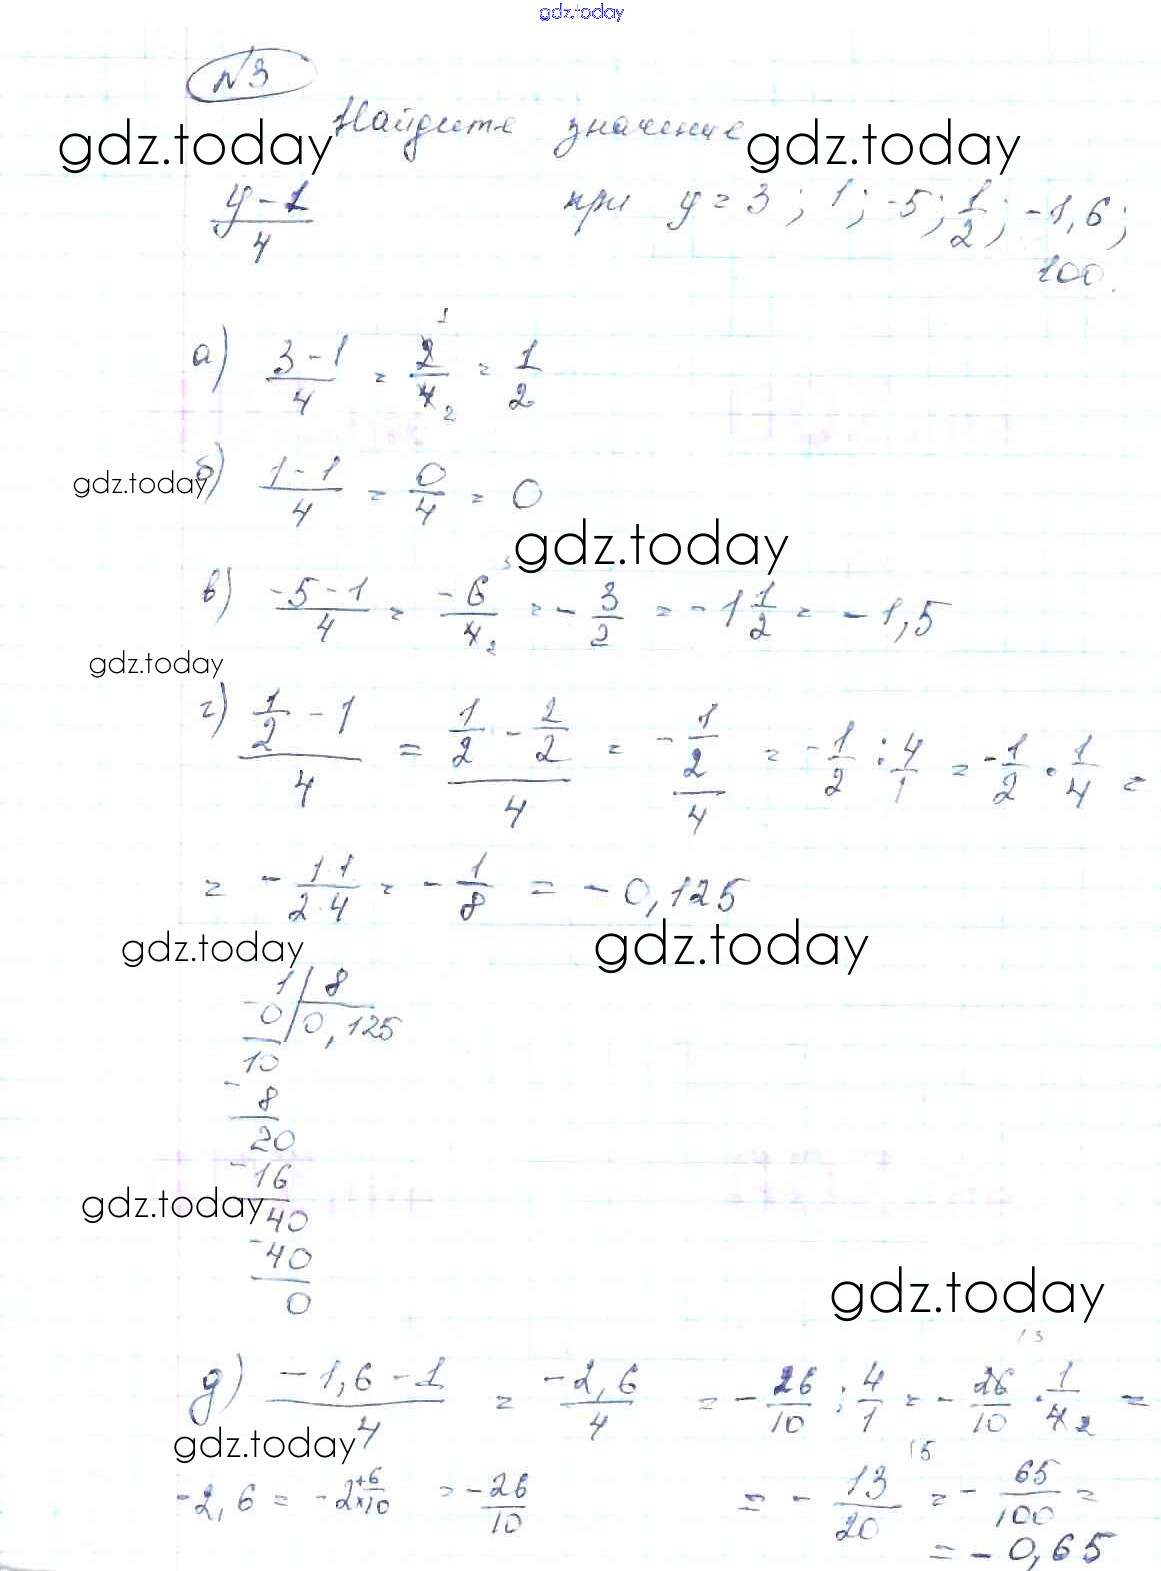 gdz.today
№3
Найдите значение
gdz.today gdz.today
(y-1)/4 при y = 3; 1; -5; 1/2; -1,6;
100.
а) (3-1)/4 = 2/4 = 1/2
gdz.today б) (1-1)/4 = 0/4 = 0
gdz.today
в) (-5-1)/4 = -6/4 = -3/2 = -1 1/2 = -1,5
gdz.today
г) (1/2 - 1)/4 = (1/2 - 2/2)/4 = (-1/2)/4 = -1/2 : 4/1 = -1/2 · 1/4 =
= -(1·1)/(2·4) = -1/8 = -0,125
gdz.today gdz.today
1 | 8
-0 | 0,125
10
-8
20
-16
gdz.today
40
-40
0
gdz.today
д) (-1,6-1)/4 = -2,6/4 = -26/10 : 4/1 = -26/10 · 1/4 =
gdz.today
-2,6 = -2 6/10 = -26/10 = -13/20 = -65/100 =
= -0,65